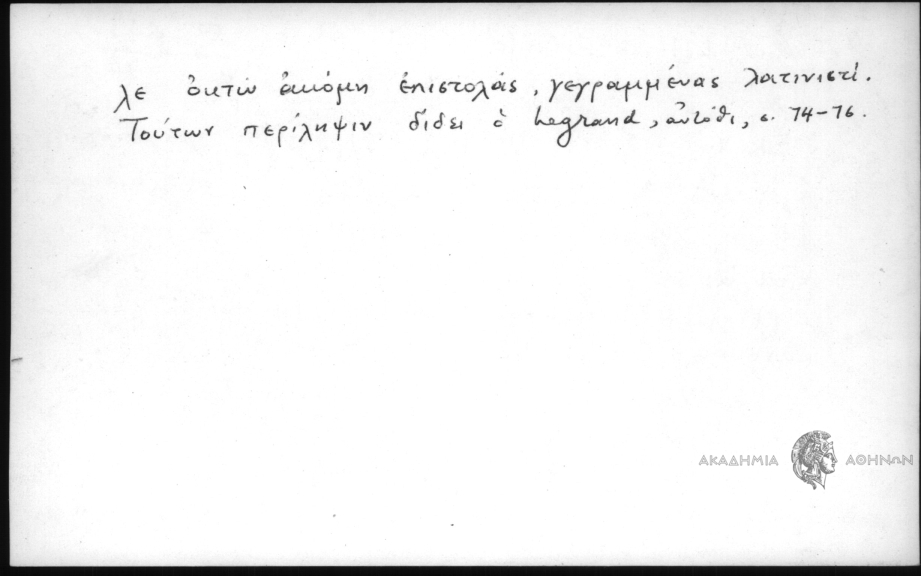 λε ὀκτὼ ἀκόμη ἐπιστολάς, γεγραμμένας λατινιστί.
Τούτων περίληψιν δίδει ὁ Legrand, αὐτόθι, σ. 74-76.
ΑΚΑΔΗΜΙΑ ΑΘΗΝΩΝ